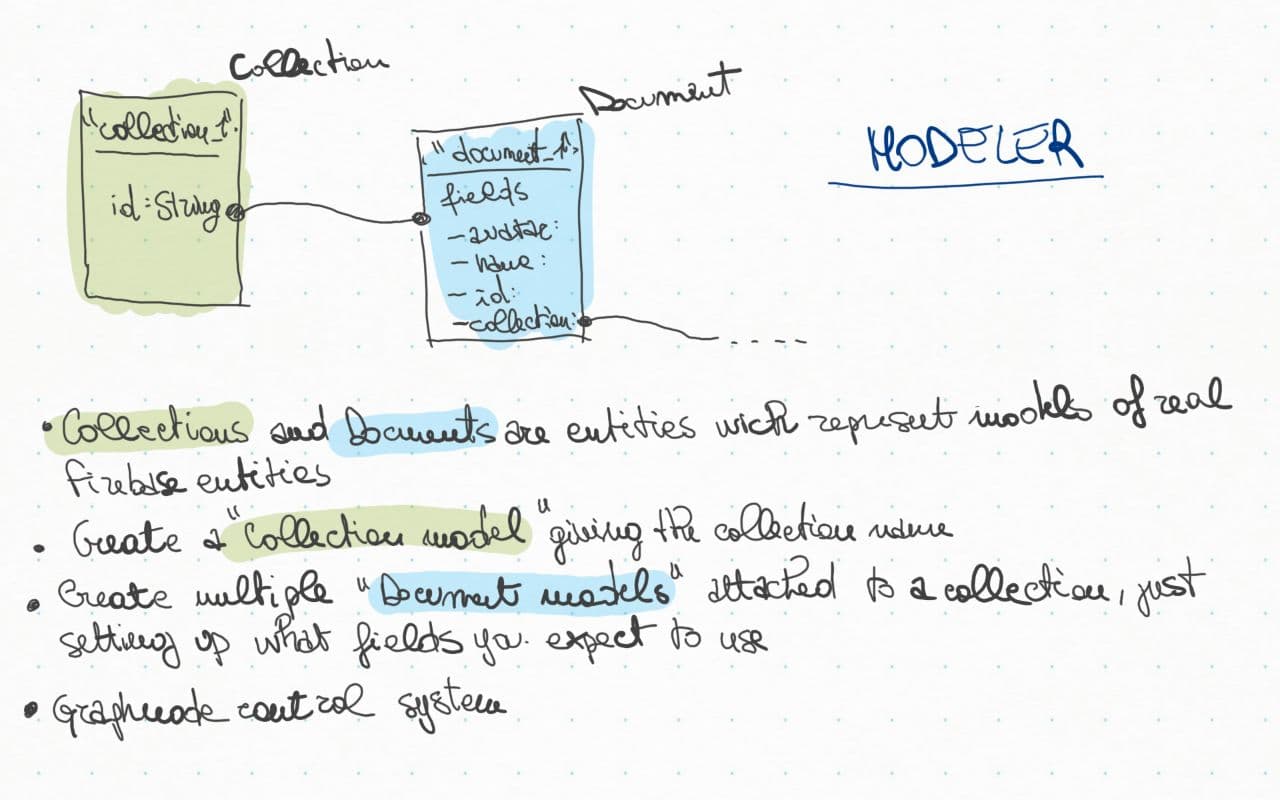 Collection
Document
MODELER
"collection_1"
id: String
"document_1"
fields
- avatar:
- name:
- id:
- collection:
• Collections and Documents are entities wich represent models of real
firebase entities
• Create a "Collection model" giving the collection name
• Create multiple "Document models" attached to a collection, just
setting up what fields you expect to use
• Graphnode control system